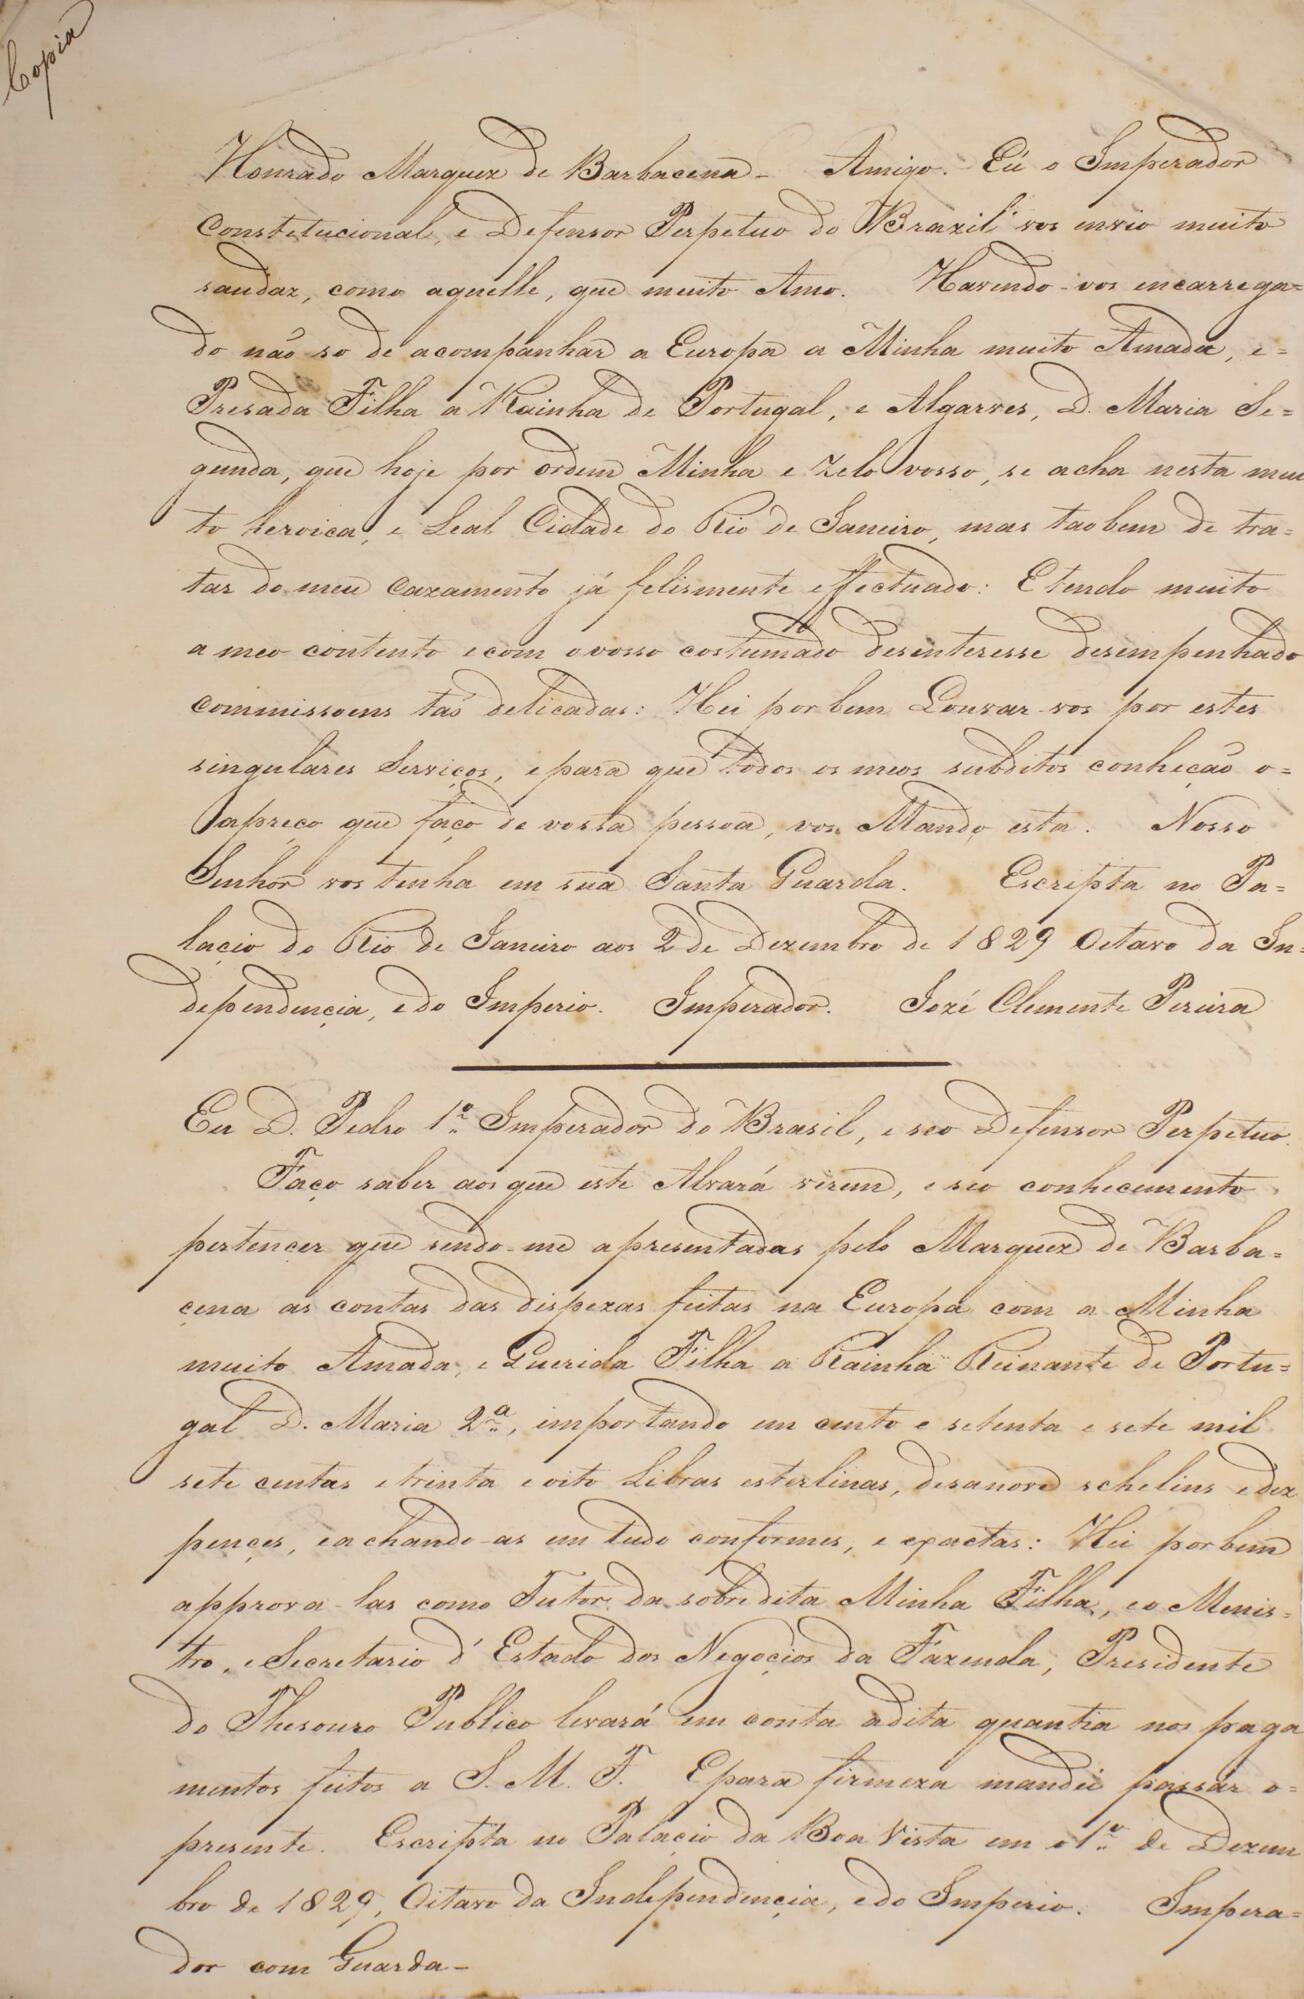 Copia
Honrado Marquez de Barbacena - Amigo. Eú o Imperador
Constetucional, e Defensor Perpetuo do Brazil vos envio muito
saudar, como aquelle, que muito Amo. Havendo-vos encarrega=
do não so de acompanhar a Europa a Minha muito Amada, e=
Presada Filha a Rainha de Portugal, e Algarves, D. Maria Se=
gunda, que hoje por ordem Minha e Zelo vosso, se acha nesta mui
to heroica, e Leal Cidade do Rio de Janeiro, mas taobem de tra=
tar do meu Cazamento já felismente effectuado: E tendo muito
a meo contento e com o vosso costumado desinteresse desempenhado
commissoens tão delicadas: Hei por bem Louvar-vos por estes
singulares Serviços, e para que todos os meos subditos conheção o=
apreço que faço de vossa pessoa, vos Mando esta. Nosso
Senhor vos tenha em sua Santa Guarda. Escripta no Pa=
lacio do Rio de Janeiro aos 2 de Dezembro de 1829 Octavo da In=
dependencia, e do Imperio. Imperador. Jozé Clemente Pereira
Eu D. Pedro 1º Imperador do Brasil, e seo Defensor Perpetuo.
Faço saber aos que este Alvará virem, e seo conhecemento
pertencer que sendo-me apresentadas pelo Marquez de Barba=
cena as contas das dispezas feitas na Europa com a Minha
muito Amada, e Querida Filha a Rainha Reinante de Portu=
gal D. Maria 2ª, importando em cento e setenta e sete mil
sete centas e trinta e oito Libras esterlinas, desanove schelins e dez
pençes, e achando-as em tudo conformes, e exactas: Hei por bem
approva-las como Tutor da sobredita Minha Filha, e o Menis=
tro, e Secretario d'Estado dos Negoçios da Fazenda, Presidente
do Thesouro Publico levará em conta adita quantia nos paga
mentos feitos a S. M. F. E para firmeza mandei passar o=
presente. Escripta no Palaçio da Boa Vista em o 1º de Dezem
bro de 1829, Oitavo da Independençia, e do Imperio. Impera=
dor com Guarda-